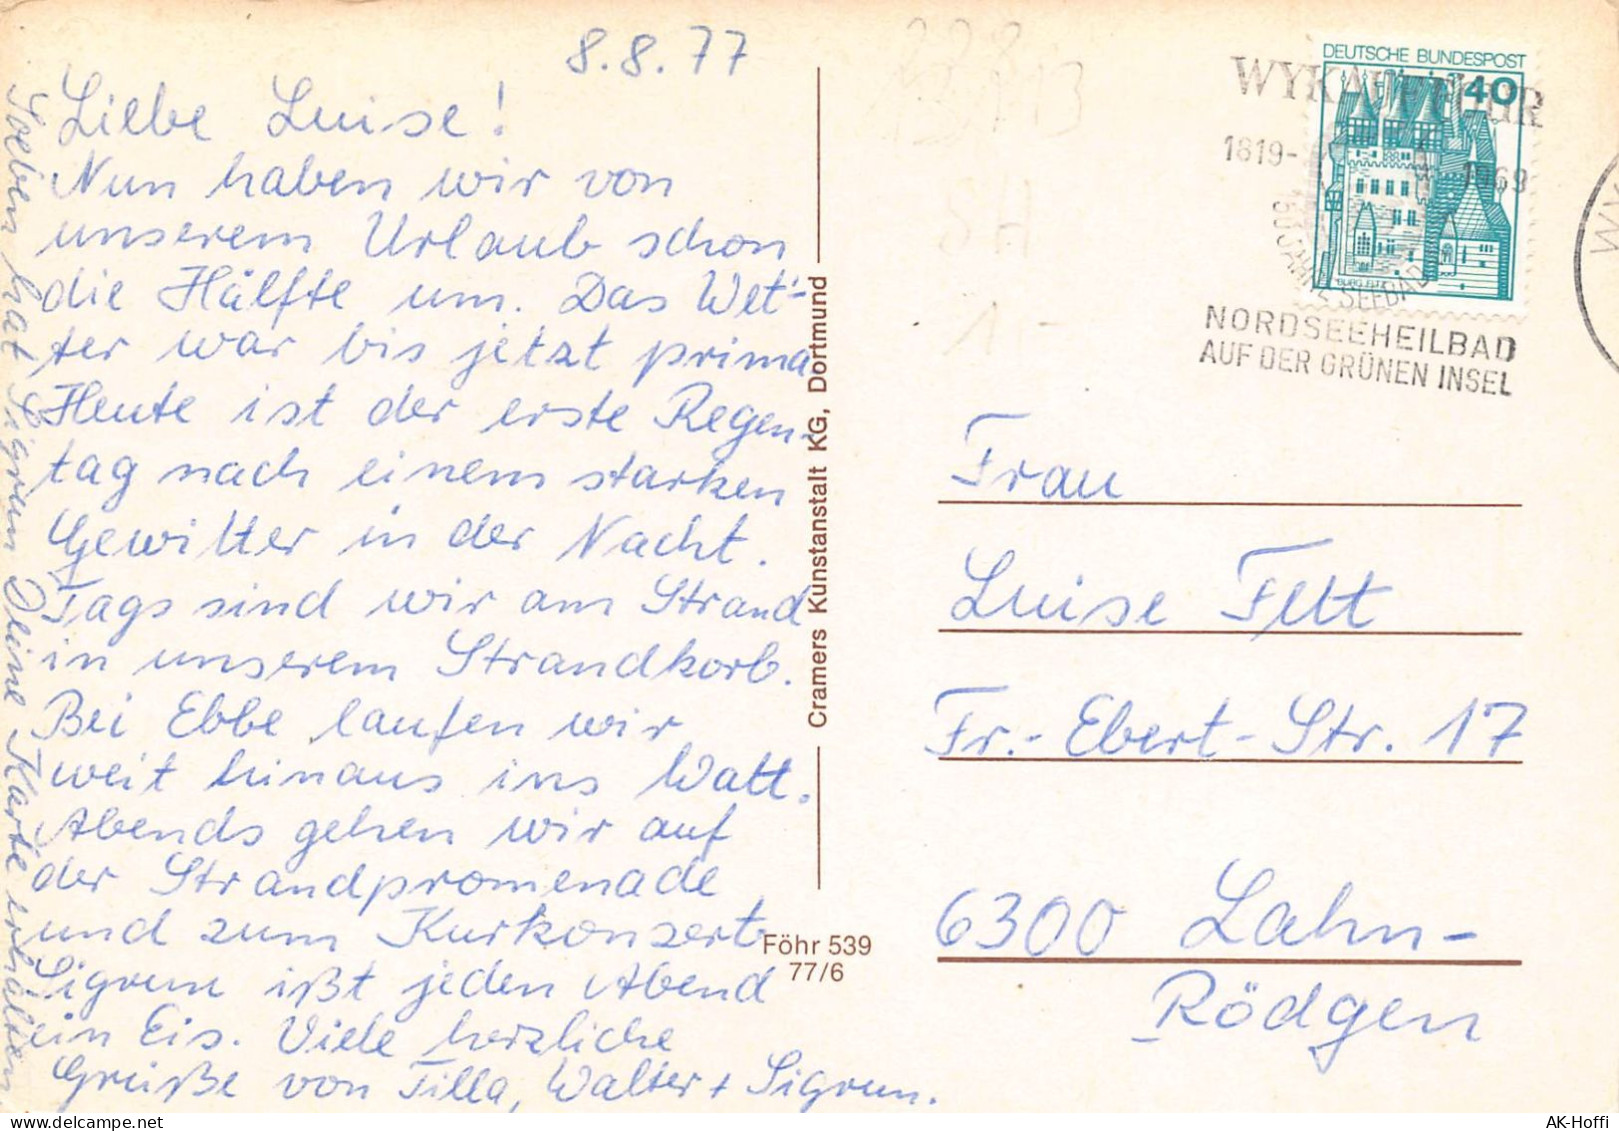 8.8.77
Liebe Luise!
Nun haben wir von
unserem Urlaub schon
die Hälfte um. Das Wet-
ter war bis jetzt prima.
Heute ist der erste Regen-
tag nach einem starken
Gewitter in der Nacht.
Tags sind wir am Strand
in unserem Strandkorb.
Bei Ebbe laufen wir
weit hinaus ins Watt.
Abends gehen wir auf
der Strandpromenade
und zum Kurkonzert.
Sigrun ißt jeden Abend
ein Eis. Viele herzliche
Grüße von Tilla, Walter + Sigrun.
Soeben hat Sigrun Deine Karte erhalten
Cramers Kunstanstalt KG, Dortmund
Föhr 539
77/6
DEUTSCHE BUNDESPOST
40
BURG ELTZ
WYK AUF FÖHR
1819-1969
150 JAHRE SEEBAD
NORDSEEHEILBAD
AUF DER GRÜNEN INSEL
Frau
Luise Fett
Fr.-Ebert-Str. 17
6300 Lahn-
Rödgen
SH
1,-
AK-Hoffi